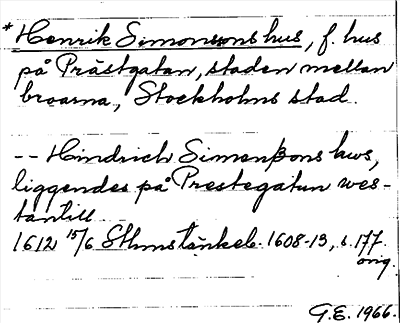 * Henrik Simonssons hus, f. hus
på Prästgatan, staden mellan
broarna, Stockholms stad.
-- Hindrich Simenßons huus,
liggendes på Prestegatun wes-
tantill
1612 15/6 Sthms tänkeb. 1608-13, s. 177.
orig.
G.E. 1966.